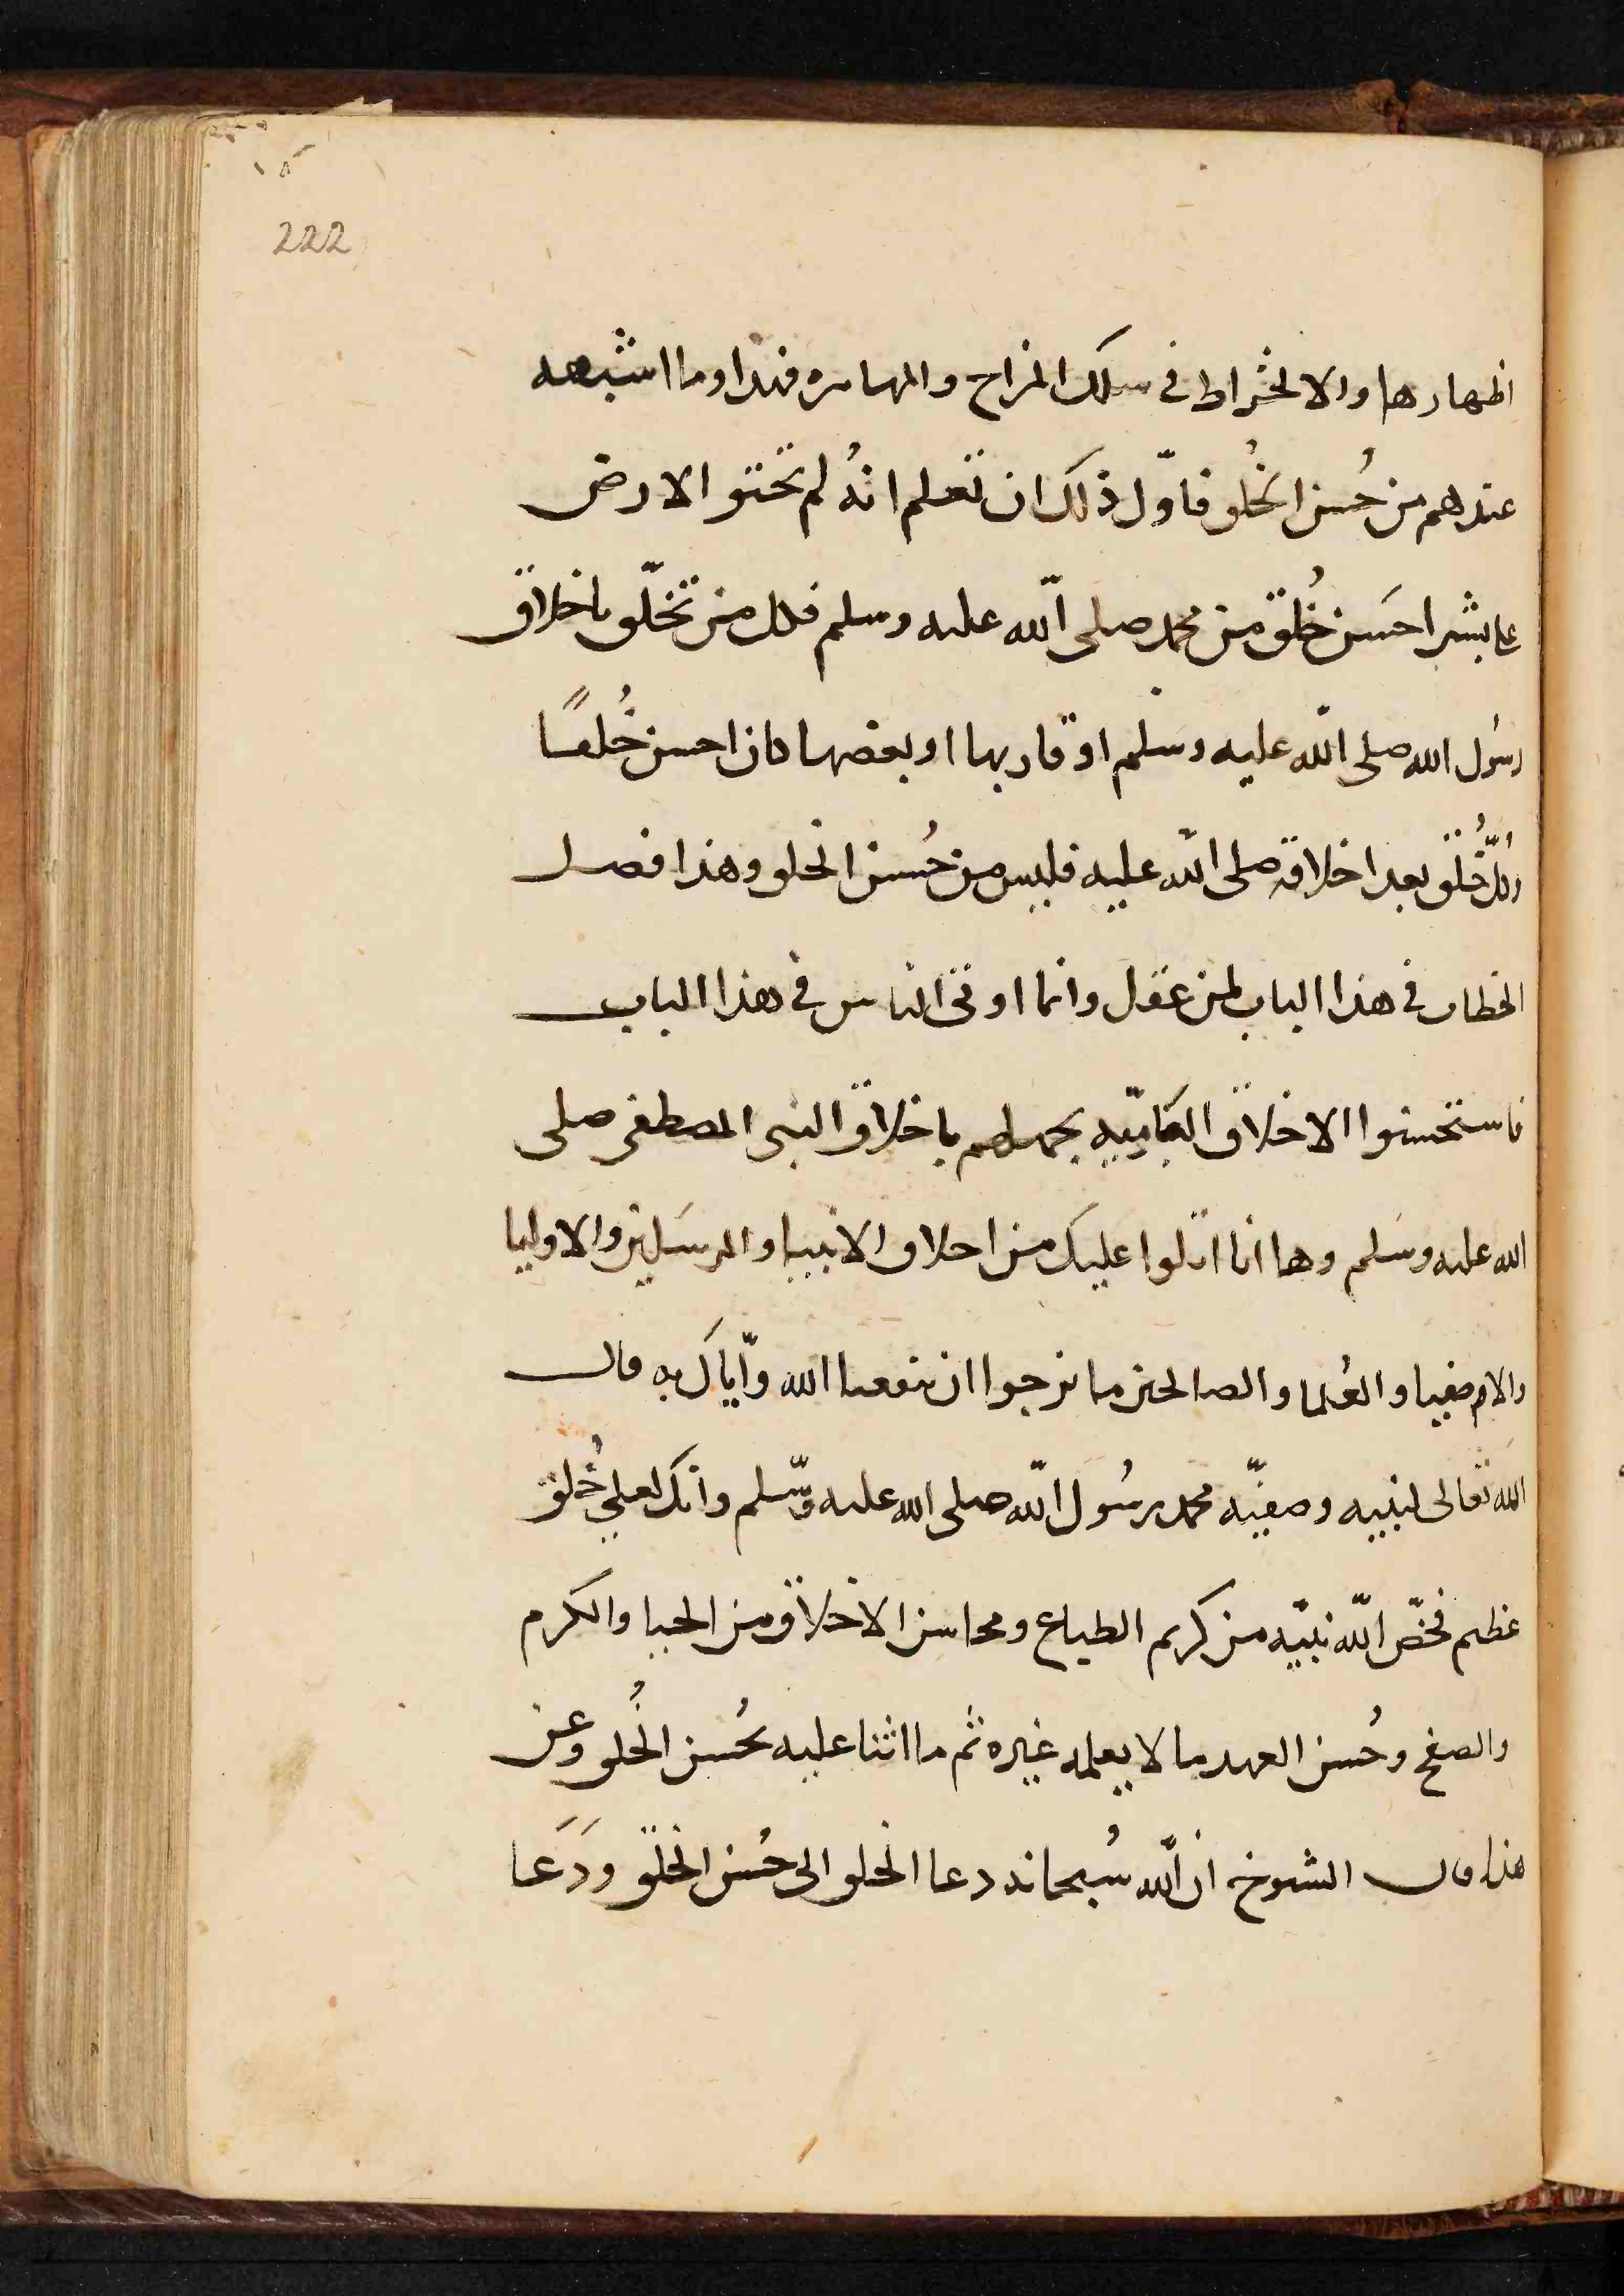 222
اظهارها والانخراط في سلك المزاح والمهاتره فهذا وما اشبهه
عندهم من حُسن الخُلُو فاوّل ذلك ان تعلم انهُ لم تحتو الارض
على بشر احَسن خُلق من محمد صلى الله عليه وسلم فكل من تخلّق باخلاق
رسُول الله صلى الله عليه وسلم او قاربها او بعضها كان احسن خُلقًا
وكلّ خُلُق بعد اخلاقه صلى الله عليه فليس من حُسن الخلق وهذا فصل
الخطاب في هذا الباب لمن عقل وانما اوتى الناس في هذا الباب
فاستحسنوا الاخلاق الكابيّه بجهلهم باخلاق النبي المصطفى صلى
الله عليه وسَلم وها انا اتلوا عليك من اخلاق الانبيا والمرسَلين والاوليا
والاصفيا والعُلما والصالحين ما نرجوا ان ينفعنا الله وايّاك به قال
الله تعالى لنبيه وصفيّه محمد رسُول الله صلى الله عليه وسّلم وانك لعلى خُلق
عظيم فخصّ الله نبيّه من كريم الطباع ومحاسن الاخلاق من الحيا والكرم
والصفح وحُسن العهد ما لا يعلمه غيره ثم ما اثنا عليه بحُسن الخُلق وعن
هذا قال الشيوخ ان الله سُبحانه دعا الخلق الى حُسن الخلق وَدَعَا